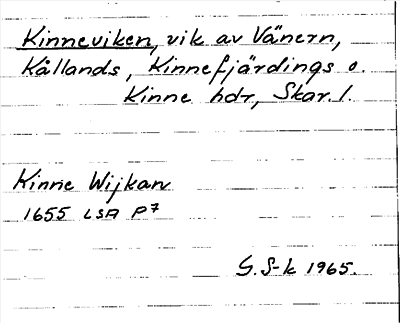 Kinneviken, vik av Vänern,
Kållands, Kinnefjärdings o.
Kinne hdr, Skar. l.
Kinne Wijkan
1655 LSA P7
G. S-k 1965.